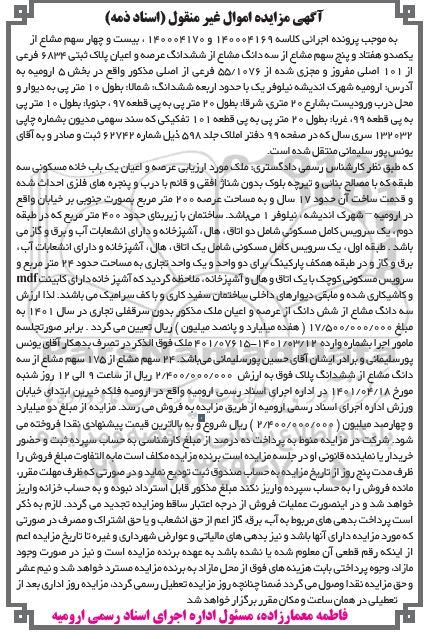 آگهی مزایده اموال غیر منقول (اسناد ذمه)
به موجب پرونده اجرائی کلاسه ۱۴۰۰۰۴۱۶۹ و ۱۴۰۰۰۴۱۷۰ ، بیست و چهار سهم مشاع از
یکصدو هفتاد و پنج سهم مشاع از سه دانگ مشاع از ششدانگ عرصه و اعیان پلاک ثبتی ۶۸۳۴ فرعی
از ۱۰۱ اصلی مفروز و مجزی شده از ۵۵/۱۰۷۶ فرعی از اصلی مذکور واقع در بخش ۵ ارومیه به
آدرس: ارومیه شهرک اندیشه نیلوفر یک با حدود اربعه ششدانگ: شمالا: بطول ۱۰ متر پی به دیوار و
محل درب ورودیست بشارع ۲۰ متری، شرقا: بطول ۲۰ متر پی به پی قطعه ۹۷ ، جنوبا: بطول ۱۰ متر پی
به پی قطعه ۹۹، غربا: بطول ۲۰ متر پی به پی قطعه ۱۰۱ تفکیکی که سند سهمی مدیون بشماره چاپی
۱۳۲۰۳۲ سری سال که در صفحه ۹۹ دفتر املاک جلد ۵۹۸ ذیل شماره ۶۲۷۴۲ ثبت و صادر و به آقای
یونس پورسلیمانی منتقل شده است.
که طبق نظر کارشناس رسمی دادگستری: ملک مورد ارزیابی عرصه و اعیان یک باب خانه مسکونی سه
طبقه که با مصالح بنائی و تیرچه بلوک بدون شناژ افقی و قائم با درب و پنجره های فلزی احداث شده
و قدمت ساخت آن حدود ۱۷ سال و به مساحت عرصه ۲۰۰ متر مربع بصورت جنوبی بر خیابان واقع
در ارومیه – شهرک اندیشه ، نیلوفر ۱ می‌باشد. ساختمان با زیربنای حدود ۴۰۰ متر مربع که در طبقه
دوم ، یک سرویس کامل مسکونی شامل دو اتاق ، هال ، آشپزخانه و دارای انشعابات آب و برق و گاز می
باشد . طبقه اول ، یک سرویس کامل مسکونی شامل یک اتاق ، هال ، آشپزخانه و دارای انشعابات آب ،
برق و گاز و در طبقه همکف پارکینگ برای دو واحد و یک واحد تجاری به مساحت حدود ۲۴ متر مربع و
سرویس مسکونی کوچک با یک اتاق و هال و آشپزخانه ، ملاحظه گردید که آشپز خانه دارای کابینت mdf
و کاشیکاری شده و مابقی دیوارهای داخلی ساختمان سفید کاری و با کف سرامیک می باشند. لذا ارزش
سه دانگ مشاع از شش دانگ از عرصه و اعیان ملک مذکور بدون سرقفلی تجاری در سال ۱۴۰۱ به
مبلغ ۱۷/۵۰۰/۰۰۰/۰۰۰ ( هفده میلیارد و پانصد میلیون ) ریال تعیین می گردد . برابر صورتجلسه
مامور اجرا بشماره وارده ۴۰۱/۰۷۶۱۵-۱۴۰۱/۰۳/۱۲ ملک فوق الذکر در تصرف بدهکار آقای یونس
پورسلیمانی و برادر ایشان آقای حسین پورسلیمانی می‌باشد. ۲۴ سهم مشاع از ۱۷۵ سهم مشاع از سه
دانگ مشاع از ششدانگ پلاک فوق به ارزش ۲/۴۰۰/۰۰۰/۰۰۰ ریال از ساعت ۹ الی ۱۲ روز شنبه
مورخ ۱۴۰۱/۰۴/۱۸ در اداره اجرای اسناد رسمی ارومیه واقع در ارومیه فلکه خیرین ابتدای خیابان
ورزش اداره اجرای اسناد رسمی ارومیه از طریق مزایده به فروش می رسد. مزایده از مبلغ دو میلیارد
و چهارصد میلیون ( ۲/۴۰۰/۰۰۰/۰۰۰ ) ریال شروع و به بالاترین قیمت پیشنهادی نقدا فروخته می
شود. شرکت در مزایده منوط به پرداخت ده درصد از مبلغ کارشناسی به حساب سپرده ثبت و حضور
خریدار یا نماینده قانونی او در جلسه مزایده است. برنده مزایده مکلف است مابه التفاوت مبلغ فروش را
ظرف مدت پنج روز از تاریخ مزایده به حساب صندوق ثبت تودیع نماید و در صورتی که ظرف مهلت مقرر،
مانده فروش را به حساب سپرده واریز نکند مبلغ مذکور قابل استرداد نبوده و به حساب خزانه واریز
خواهد شد و در اینصورت عملیات فروش از درجه اعتبار ساقط ومزایده تجدید می گردد. لازم به ذکر
است پرداخت بدهی های مربوط به آب، برق، گاز اعم از حق انشعاب و یا حق اشتراک و مصرف در صورتی
که مورد مزایده دارای آنها باشد و نیز بدهی های مالیاتی و عوارض شهرداری و غیره تا تاریخ مزایده اعم
از اینکه رقم قطعی آن معلوم شده یا نشده باشد به عهده برنده مزایده است و نیز در صورت وجود
مازاد، وجوه پرداختی بابت هزینه های فوق از محل مازاد به برنده مزایده مسترد خواهد شد و نیم عشر
و حق مزایده نقدا وصول می گردد ضمنا چنانچه روز مزایده تعطیل رسمی گردد، مزایده روز اداری بعد از
تعطیلی در همان ساعت و مکان مقرر برگزار خواهد شد
فاطمه معمارزاده، مسئول اداره اجرای اسناد رسمی ارومیه